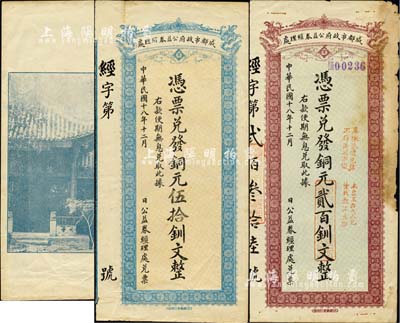 成都市政府公益券經理處
憑票兌發銅元伍拾釧文整
右款便期無息兌取此據
中華民國十八年十二月 日公益券經理處兌票
經字第 號
成都市政府公益券經理處
00236
憑票兌發銅元貳百釧文整
右款便期無息兌取此據
中華民國十八年十二月 日公益券經理處兌票
經字第貳百叁拾陸號
上海陽明拍賣